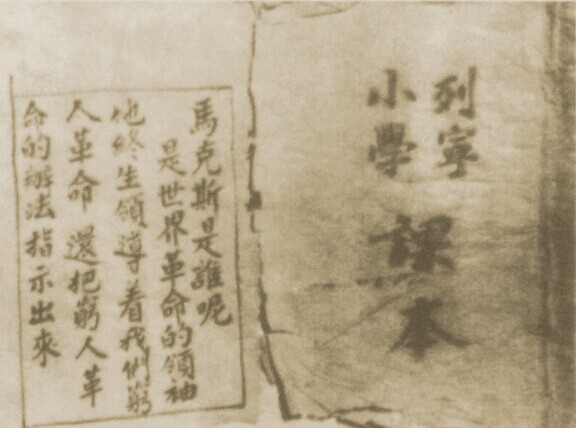 列寧
小學
課本
馬克斯是誰呢
是世界革命的領袖
他終生領導着我們窮
人革命還把窮人革
命的辦法指示出來